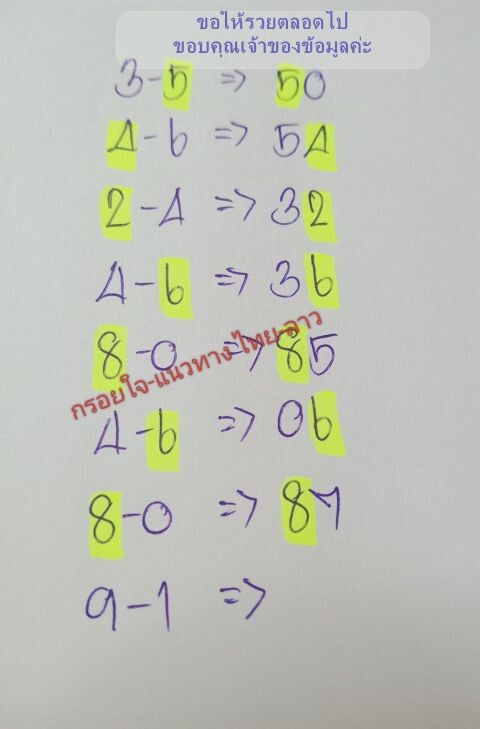 ขอให้รวยตลอดไป
ขอบคุณเจ้าของข้อมูลค่ะ
3-5 => 50
4-6 => 54
2-4 => 32
4-6 => 36
8-0 => 85
กรอยใจ-แนวทาง-ไทย-ลาว
4-6 => 06
8-0 => 87
9-1 =>